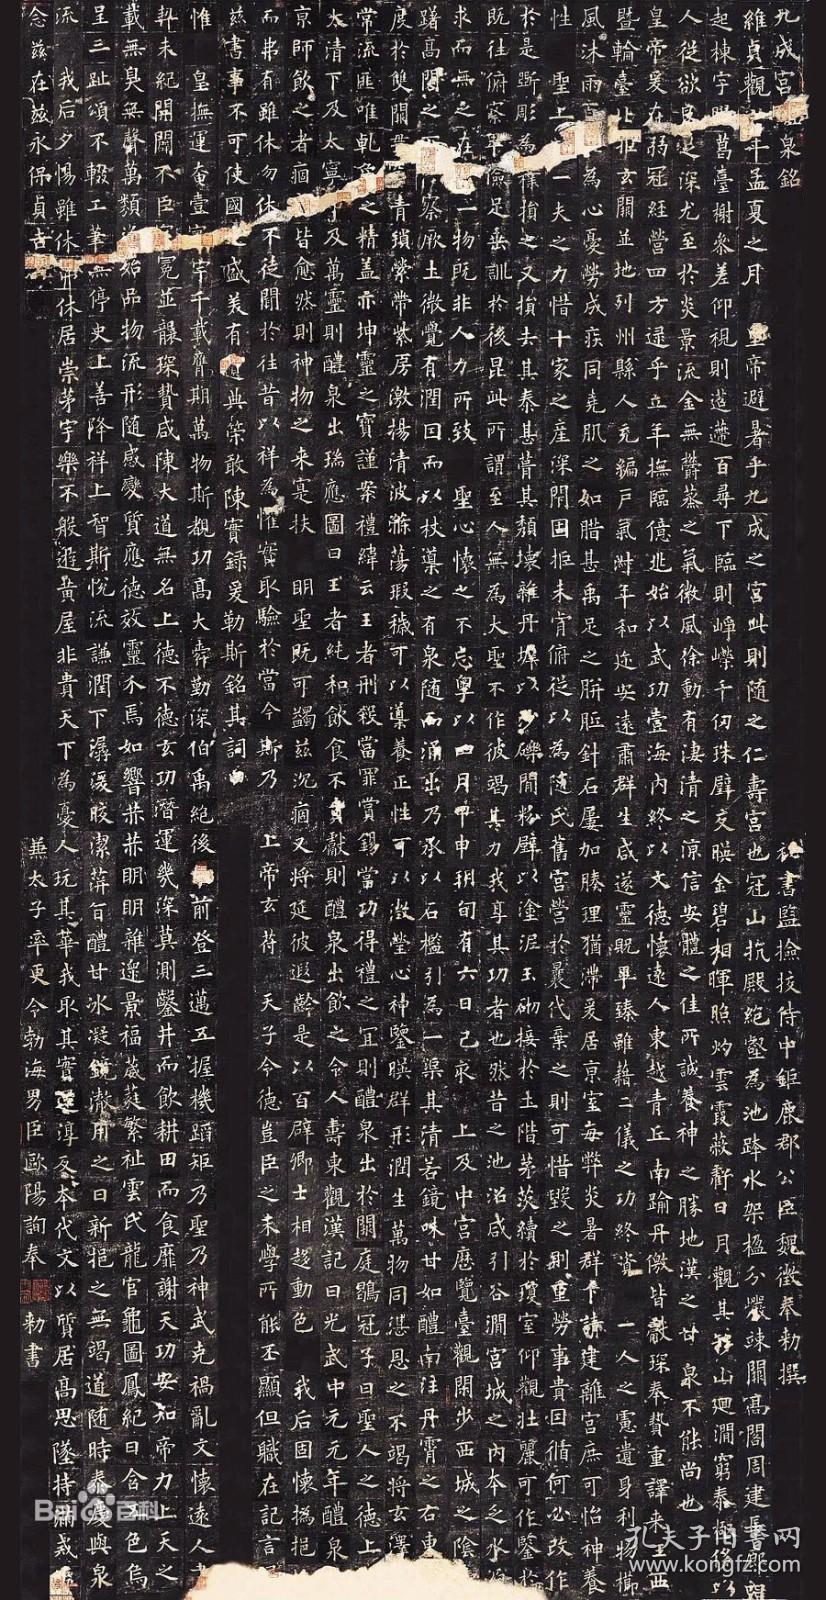 九成宮 泉銘 秘書監撿挍侍中鉅鹿郡公臣魏徵奉勅撰
維貞觀 年孟夏之月 皇帝避暑乎九成之宮此則隨之仁壽宮也冠山抗殿絕壑為池跨水架楹分巖竦闕高閣周建長廊
起棟宇 葛臺榭參差仰視則迢遰百尋下臨則崢嶸千仞珠壁交暎金碧相暉照灼雲霞蔽虧日月觀其移山迴澗窮泰極侈以
人從欲良足深尤至於炎景流金無欝蒸之氣微風徐動有淒清之涼信安體之佳所誠養神之勝地漢之甘泉不能尚也
皇帝爰在弱冠經營四方逮乎立年撫臨億兆始以武功壹海內終以文德懷遠人東越青丘南踰丹徼皆獻琛奉贄重譯來 西
暨輪臺北拒玄闕並地列州縣人充編戶氣 年和迩安遠肅群生咸遂靈貺畢臻雖藉二儀之功終資 一人之慮遺身利物櫛
風沐雨 為心憂勞成疾同堯肌之如腊甚禹足之胼胝針石屢加腠理猶滯爰居京室每弊炎暑群下請建離宮庶可怡神養
性 聖上 一夫之力惜十家之產深閉固拒未肯俯從以為隨氏舊宮營於曩代棄之則可惜毀之則重勞事貴因循何必改作
於是斲彫為樸損之又損去其泰甚葺其頹壞雜丹墀以沙礫間粉壁以塗泥玉砌接於土階茅茨續於瓊室仰觀壯麗可作鑒於
既往俯察卑儉足垂訓於後昆此所謂至人無為大聖不作彼竭其力我享其功者也然昔之池沼咸引谷澗宮城之內本乏水源
求而無之在 一物既非人力所致 聖心懷之不忘粵以四月甲申朔旬有六日己亥 上及中宮歷覽臺觀閑步西城之陰
躊躇高閣之 察厥土微覺有潤因而以杖導之有泉隨而涌出乃承以石檻引為一渠其清若鏡味甘如醴南注丹霄之右東
度於雙闕 青瑣縈帶紫房激揚清波滌蕩瑕穢可以導養正性可以澂瑩心神鑒暎群形潤生萬物同湛恩之不竭將玄澤
常流匪唯乾象之精蓋亦坤靈之寶謹案禮緯云王者刑殺當罪賞錫當功得禮之宜則醴泉出於闕庭鶡冠子曰聖人之德上
太清下及太寧 及萬靈則醴泉出瑞應圖曰王者純和飲食不貢獻則醴泉出飲之令人壽東觀漢記曰光武中元元年醴泉
京師飲之者痼 皆愈然則神物之來寔扶 明聖既可蠲茲沉痼又將延彼遐齡是以百辟卿士相趍動色 我后固懷撝挹
而弗有雖休勿休不徒聞於往昔以祥為懼實取驗於當今斯乃 上帝玄符 天子令德豈臣之末學所能丕顯但職在記言
茲書事不可使國之盛美有 典策敢陳實錄爰勒斯銘其詞曰
惟 皇撫運奄壹 宇千載膺期萬物斯覩功高大舜勤深伯禹絕後 前登三邁五握機蹈矩乃聖乃神武克禍亂文懷遠人書
契未紀開闢不臣 冕並襲琛贄咸陳大道無名上德不德玄功潛運幾深莫測鑿井而飲耕田而食靡謝天功安知帝力上天之
載無臭無聲萬類資始品物流形隨感變質應德效靈介焉如響赫赫明明雜遝景福葳蕤繁祉雲氏龍官龜圖鳳紀日含五色烏
呈三趾頌不輟工筆無停史上善降祥上智斯悅流謙潤下潺湲皎潔蓱旨醴甘冰凝鏡澈用之日新挹之無竭道隨時泰慶與泉
流 我后夕惕雖休弗休居崇茅宇樂不般遊黃屋非貴天下為憂人玩其華我取其實還淳反本代文以質居高思墜持滿戒
念茲在茲永保貞吉 兼太子率更令勃海男臣歐陽詢奉 勅書
Bai 百科
孔夫子旧书网
www.kongfz.com